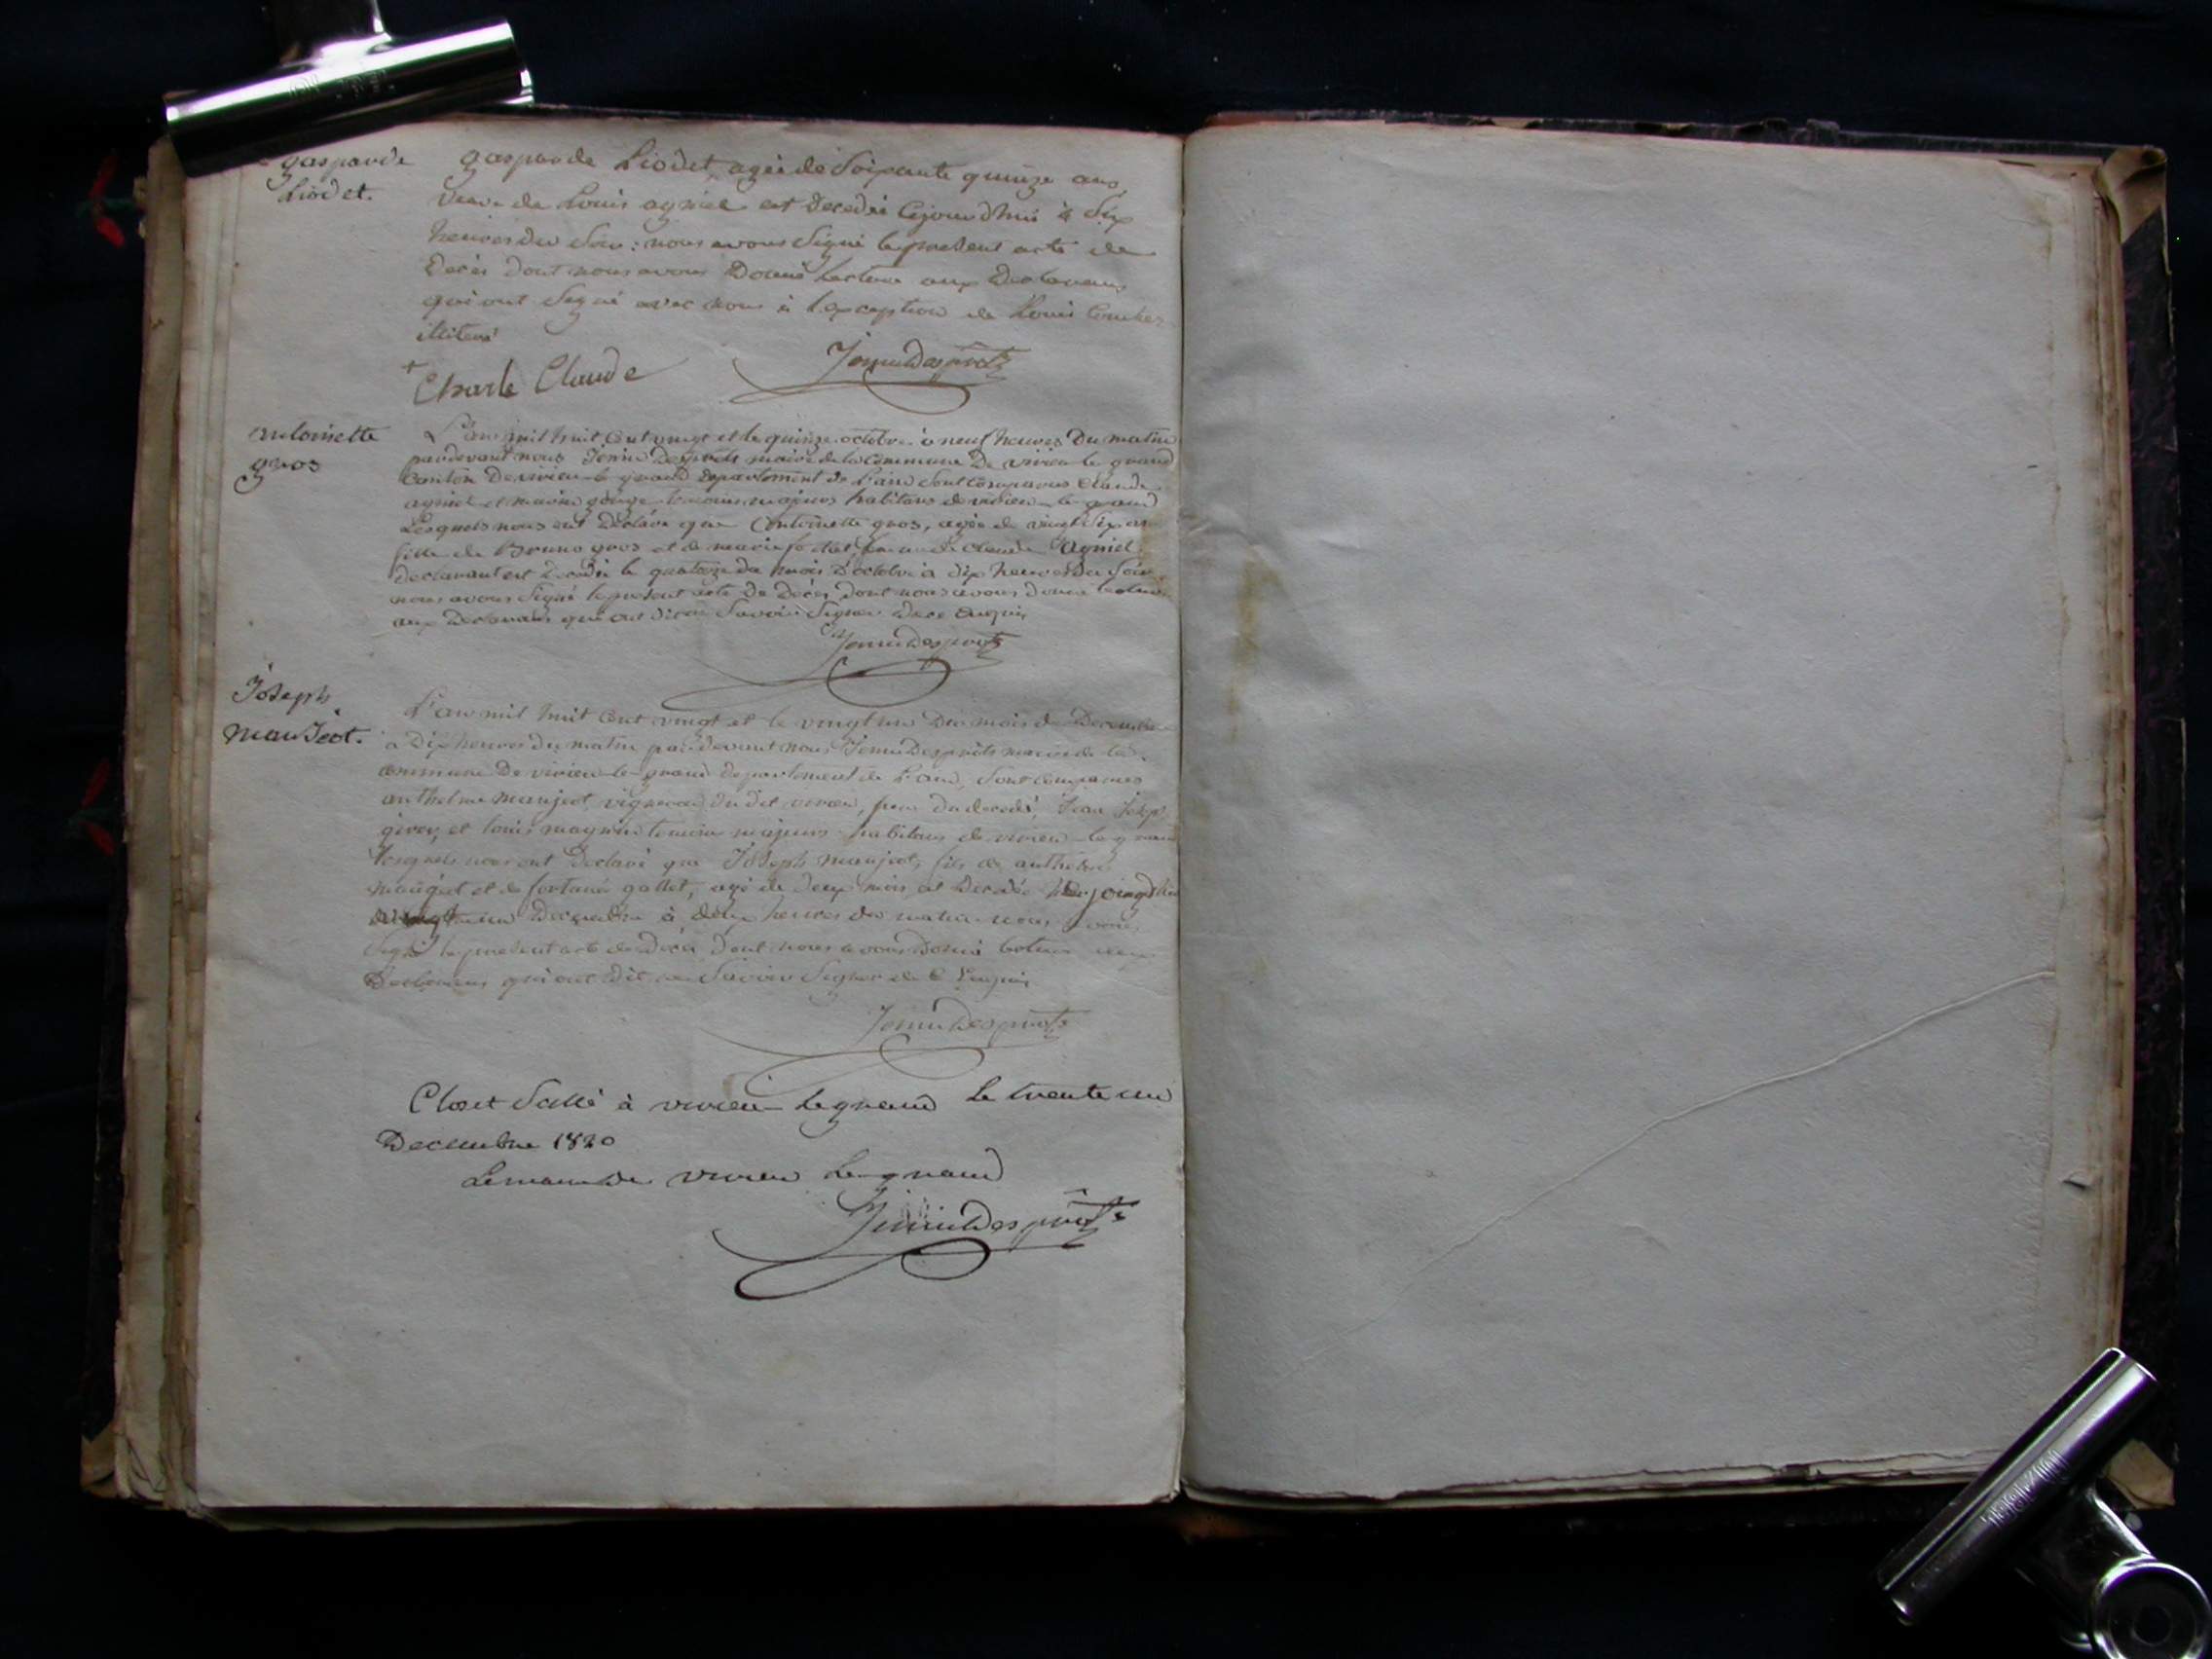 gasparde
Liodet.
gasparde Liodet, agée de Soixante quinze ans,
veuve de Louis agniel est decedée cejourdhui à Six
heures du Soir : nous avons signé le present acte de
Decès dont nous avons Donné lecture aux Declarans
qui ont Signé avec nous à l'exception de Louis
illiteré
Charle Claude
antoinette
gros
L'an mil huit Cent vingt et le quinze octobre à neuf heures Du matin
pardevant nous maire de la Commune De virieu-le-grand
Canton De virieu-le-grand Departement de l'ain Sont Comparus Claude
agniel et temoins majeurs habitans de virieu-le-grand
Lesquels nous ont Déclaré que antoinette gros, agée de vingt Six ans
fille de Bruno gros et de marie femme de Claude Agniel
declarant est decedée le quatorze du mois D'octobre à dix heures du Soir
nous avons Signé le présent acte De Decès Dont nous avons Donné lecture
aux Declarans qui ont Dit ne Savoir Signer De ce Enquis
Joseph
maujeot.
L'an mil huit Cent vingt et le vingt un Du mois de Decembre
à Dix heures du matin pardevant nous maire de la
commune De virieu-le-grand Departement de L'ain, Sont comparus
anthelme maujeot, vigneron du dit virieu, père du decedé, Jean Joseph
et louis magnin temoins majeurs habitans de virieu-le-grand
lesquels nous ont Declaré que Joseph maujeot, fils de anthelme
maujeot et de gallet, agé de deux mois est Decedé
vingt un Decembre à deux heures du matin nous avons
Signé le présent acte de Decès Dont nous avons Donné lecture aux
Declarans qui ont Dit ne Savoir Signer de ce Enquis
Clos et à virieu-le grand le trente un
Decembre 1820
Le maire de virieu le grand